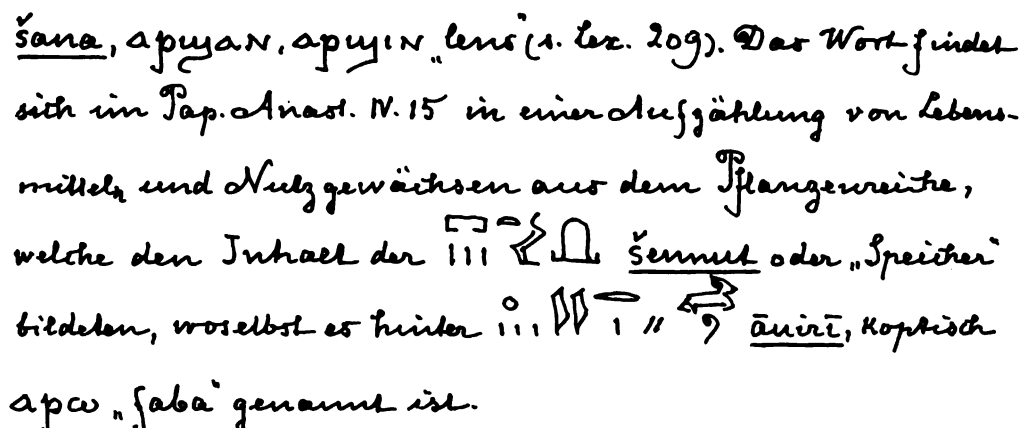 šana, ⲁⲣϣⲁⲛ, ⲁⲣϣⲓⲛ „lens“ (s. Lex. 209). Das Wort findet
sich im Pap. Anast. IV. 15 in einer Aufzählung von Lebens-
mitteln und Nutzgewächsen aus dem Pflanzenreiche,
welche den Inhalt der šennut oder „Speicher“
bildeten, woselbst es hinter āuirī, koptisch
ⲁⲣⲱ „faba“ genannt ist.